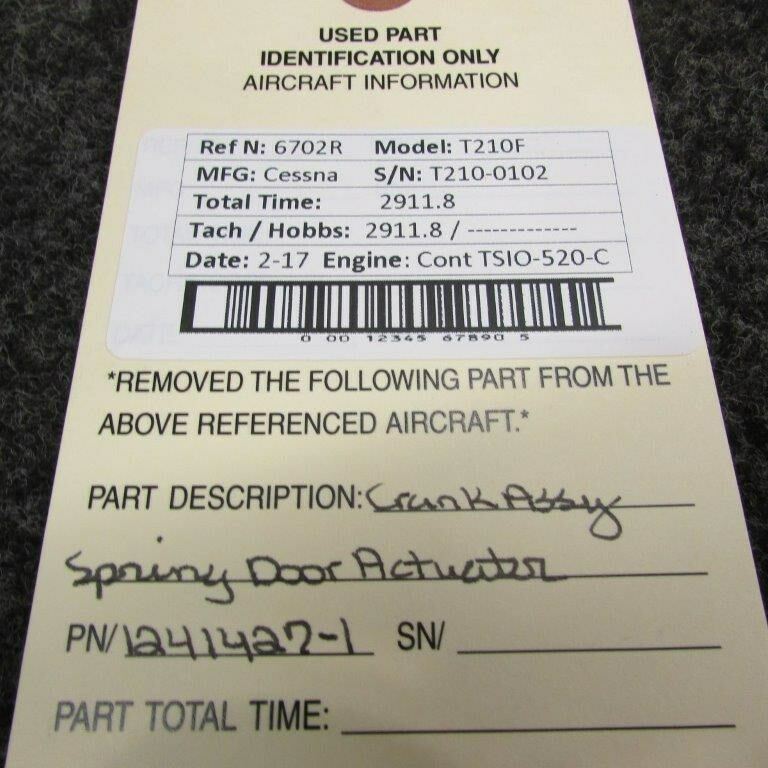 USED PART
IDENTIFICATION ONLY
AIRCRAFT INFORMATION
Ref N: 6702R Model: T210F
MFG: Cessna S/N: T210-0102
Total Time: 2911.8
Tach / Hobbs: 2911.8 / -------------
Date: 2-17 Engine: Cont TSIO-520-C
0 00 12345 67890 5
*REMOVED THE FOLLOWING PART FROM THE
ABOVE REFERENCED AIRCRAFT.*
PART DESCRIPTION: Crank Assy
Spring Door Actuator
PN/ 1241427-1 SN/
PART TOTAL TIME: